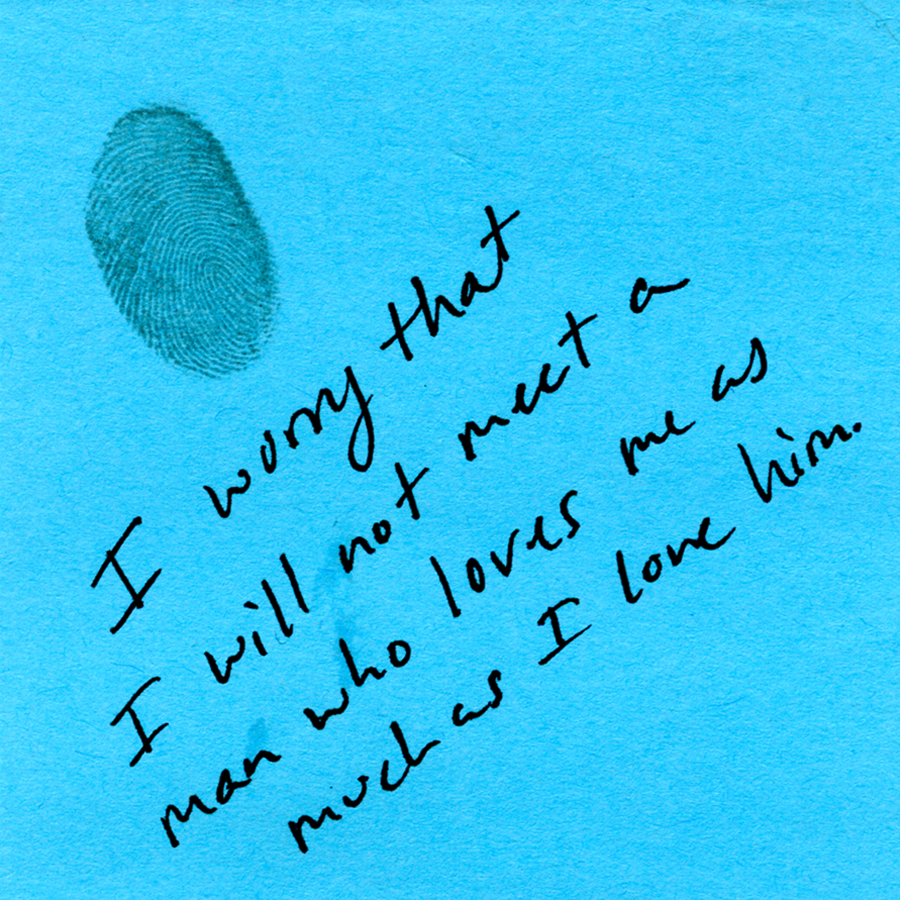 I worry that
I will not meet a
man who loves me as
much as I love him.